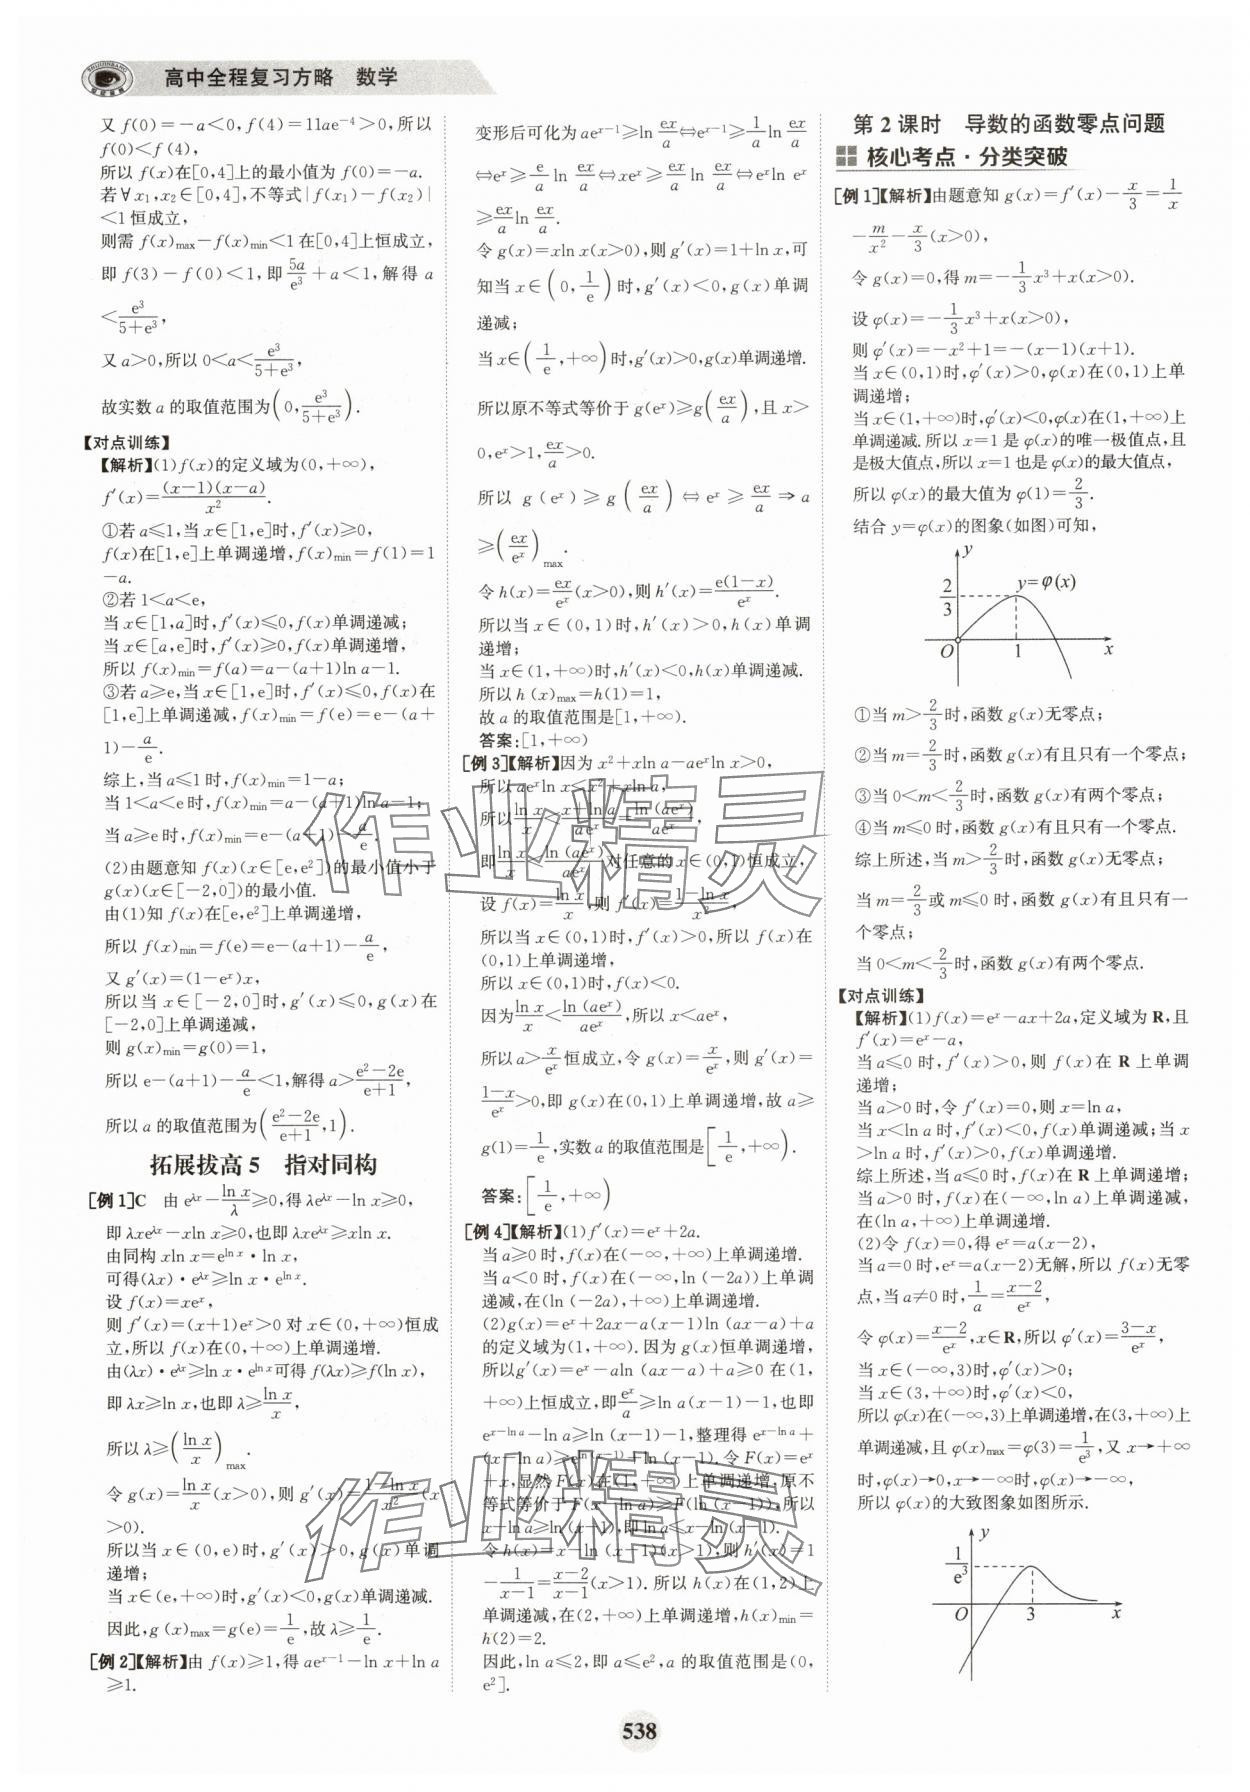 高中全程复习方略　数学
又 f(0)=-a<0,f(4)=11ae⁻⁴>0,所以
f(0)<f(4),
所以 f(x)在[0,4]上的最小值为 f(0)=-a.
若∀x₁,x₂∈[0,4],不等式|f(x₁)-f(x₂)|
<1恒成立,
则需 f(x)max-f(x)min<1在[0,4]上恒成立,
即 f(3)-f(0)<1,即5a/e³+a<1,解得 a
<e³/(5+e³),
又 a>0,所以 0<a<e³/(5+e³),
故实数 a 的取值范围为(0,e³/(5+e³)).
【对点训练】
【解析】(1)f(x)的定义域为(0,+∞),
f′(x)=(x-1)(x-a)/x².
①若 a≤1,当 x∈[1,e]时,f′(x)≥0,
f(x)在[1,e]上单调递增,f(x)min=f(1)=1
-a.
②若 1<a<e,
当 x∈[1,a]时,f′(x)≤0,f(x)单调递减;
当 x∈[a,e]时,f′(x)≥0,f(x)单调递增,
所以 f(x)min=f(a)=a-(a+1)ln a-1.
③若 a≥e,当 x∈[1,e]时,f′(x)≤0,f(x)在
[1,e]上单调递减,f(x)min=f(e)=e-(a+
1)-a/e.
综上,当 a≤1时,f(x)min=1-a;
当 1<a<e时,f(x)min=a-(a+1)ln a-1;
当 a≥e时,f(x)min=e-(a+1)-a/e.
(2)由题意知 f(x)(x∈[e,e²])的最小值小于
g(x)(x∈[-2,0])的最小值.
由(1)知 f(x)在[e,e²]上单调递增,
所以 f(x)min=f(e)=e-(a+1)-a/e,
又 g′(x)=(1-eˣ)x,
所以当 x∈[-2,0]时,g′(x)≤0,g(x)在
[-2,0]上单调递减,
则 g(x)min=g(0)=1,
所以 e-(a+1)-a/e<1,解得 a>(e²-2e)/(e+1),
所以 a 的取值范围为((e²-2e)/(e+1),1).
拓展拔高 5　指对同构
[例 1]C　由 e^λx-ln x/λ≥0,得 λe^λx-ln x≥0,
即 λxe^λx-xln x≥0,也即 λxe^λx≥xln x.
由同构 xln x=e^ln x·ln x,
可得(λx)·e^λx≥ln x·e^ln x.
设 f(x)=xeˣ,
则 f′(x)=(x+1)eˣ>0 对 x∈(0,+∞)恒成
立,所以 f(x)在(0,+∞)上单调递增.
由(λx)·e^λx≥ln x·e^ln x可得 f(λx)≥f(ln x),
即 λx≥ln x,也即 λ≥ln x/x,
所以 λ≥(ln x/x)max.
令 g(x)=ln x/x(x>0),则 g′(x)=(1-ln x)/x²(x
>0).
所以当 x∈(0,e)时,g′(x)>0,g(x)单调
递增;
当 x∈(e,+∞)时,g′(x)<0,g(x)单调递减.
因此,g(x)max=g(e)=1/e,故 λ≥1/e.
[例 2]【解析】由 f(x)≥1,得 aeˣ⁻¹-ln x+ln a
≥1.
变形后可化为 aeˣ⁻¹≥ln ex/a⇔eˣ⁻¹≥1/a ln ex/a
⇔eˣ≥e/a ln ex/a⇔xeˣ≥ex/a ln ex/a⇔eˣln eˣ
≥ex/a ln ex/a.
令 g(x)=xln x(x>0),则 g′(x)=1+ln x,可
知当 x∈(0,1/e)时,g′(x)<0,g(x)单调
递减;
当 x∈(1/e,+∞)时,g′(x)>0,g(x)单调递增.
所以原不等式等价于 g(eˣ)≥g(ex/a),且 x>
0,eˣ>1,ex/a>0.
所以 g(eˣ)≥g(ex/a)⇔eˣ≥ex/a⇒a
≥(ex/eˣ)max.
令 h(x)=ex/eˣ(x>0),则 h′(x)=e(1-x)/eˣ.
所以当 x∈(0,1)时,h′(x)>0,h(x)单调
递增;
当 x∈(1,+∞)时,h′(x)<0,h(x)单调递减.
所以 h(x)max=h(1)=1,
故 a 的取值范围是[1,+∞).
答案:[1,+∞)
[例 3]【解析】因为 x²+xln a-aeˣln x>0,
所以 aeˣln x<x²+xln a,
所以 ln x/x<(x+ln a)/aeˣ=ln(aeˣ)/aeˣ,
即 ln x/x<ln(aeˣ)/aeˣ 对任意的 x∈(0,1)恒成立,
设 f(x)=ln x/x,则 f′(x)=(1-ln x)/x²,
所以当 x∈(0,1)时,f′(x)>0,所以 f(x)在
(0,1)上单调递增,
所以 x∈(0,1)时,f(x)<0.
因为 ln x/x<ln(aeˣ)/aeˣ,所以 x<aeˣ,
所以 a>x/eˣ 恒成立,令 g(x)=x/eˣ,则 g′(x)=
(1-x)/eˣ>0,即 g(x)在(0,1)上单调递增,故 a≥
g(1)=1/e,实数 a 的取值范围是[1/e,+∞).
答案:[1/e,+∞)
[例 4]【解析】(1)f′(x)=eˣ+2a.
当 a≥0时,f(x)在(-∞,+∞)上单调递增.
当 a<0时,f(x)在(-∞,ln(-2a))上单调
递减,在(ln(-2a),+∞)上单调递增.
(2)g(x)=eˣ+2ax-a(x-1)ln(ax-a)+a
的定义域为(1,+∞).因为 g(x)恒单调递增,
所以g′(x)=eˣ-aln(ax-a)+a≥0在(1,
+∞)上恒成立,即eˣ/a≥ln a(x-1)-1,也即
e^(x-ln a)-ln a≥ln(x-1)-1,整理得 e^(x-ln a)+
(x-ln a)≥e^ln(x-1)+ln(x-1).令 F(x)=eˣ
+x,显然 F(x)在(1,+∞)上单调递增,原不
等式等价于 F(x-ln a)≥F(ln(x-1)),所以
x-ln a≥ln(x-1),即 ln a≤x-ln(x-1).
令 h(x)=x-ln(x-1)(x>1),则 h′(x)=1
-1/(x-1)=(x-2)/(x-1)(x>1).所以 h(x)在(1,2)上
单调递减,在(2,+∞)上单调递增,h(x)min=
h(2)=2.
因此,ln a≤2,即 a≤e²,a 的取值范围是(0,
e²].
第 2 课时　导数的函数零点问题
核心考点·分类突破
[例 1]【解析】由题意知 g(x)=f′(x)-x/3=1/x
-m/x²-x/3(x>0),
令 g(x)=0,得 m=-1/3x³+x(x>0).
设 φ(x)=-1/3x³+x(x>0),
则 φ′(x)=-x²+1=-(x-1)(x+1).
当 x∈(0,1)时,φ′(x)>0,φ(x)在(0,1)上单
调递增;
当 x∈(1,+∞)时,φ′(x)<0,φ(x)在(1,+∞)上
单调递减.所以 x=1 是 φ(x)的唯一极值点,且
是极大值点,所以 x=1 也是 φ(x)的最大值点,
所以 φ(x)的最大值为 φ(1)=2/3.
结合 y=φ(x)的图象(如图)可知,
y
2/3
y=φ(x)
O 1 x
①当 m>2/3时,函数 g(x)无零点;
②当 m=2/3时,函数 g(x)有且只有一个零点;
③当 0<m<2/3时,函数 g(x)有两个零点;
④当 m≤0时,函数 g(x)有且只有一个零点.
综上所述,当 m>2/3时,函数 g(x)无零点;
当 m=2/3或 m≤0时,函数 g(x)有且只有一
个零点;
当 0<m<2/3时,函数 g(x)有两个零点.
【对点训练】
【解析】(1)f(x)=eˣ-ax+2a,定义域为 R,且
f′(x)=eˣ-a,
当 a≤0时,f′(x)>0,则 f(x)在 R 上单调
递增;
当 a>0时,令 f′(x)=0,则 x=ln a,
当 x<ln a时,f′(x)<0,f(x)单调递减;当 x
>ln a时,f′(x)>0,f(x)单调递增.
综上所述,当 a≤0时,f(x)在 R 上单调递增;
当 a>0时,f(x)在(-∞,ln a)上单调递减,
在(ln a,+∞)上单调递增.
(2)令 f(x)=0,得 eˣ=a(x-2),
当 a=0时,eˣ=a(x-2)无解,所以 f(x)无零
点,当 a≠0时,1/a=(x-2)/eˣ,
令 φ(x)=(x-2)/eˣ,x∈R,所以 φ′(x)=(3-x)/eˣ,
当 x∈(-∞,3)时,φ′(x)>0;
当 x∈(3,+∞)时,φ′(x)<0,
所以 φ(x)在(-∞,3)上单调递增,在(3,+∞)上
单调递减,且 φ(x)max=φ(3)=1/e³,又 x→+∞
时,φ(x)→0,x→-∞时,φ(x)→-∞,
所以 φ(x)的大致图象如图所示.
y
1/e³
O 3 x
作业精灵
作业精灵
538